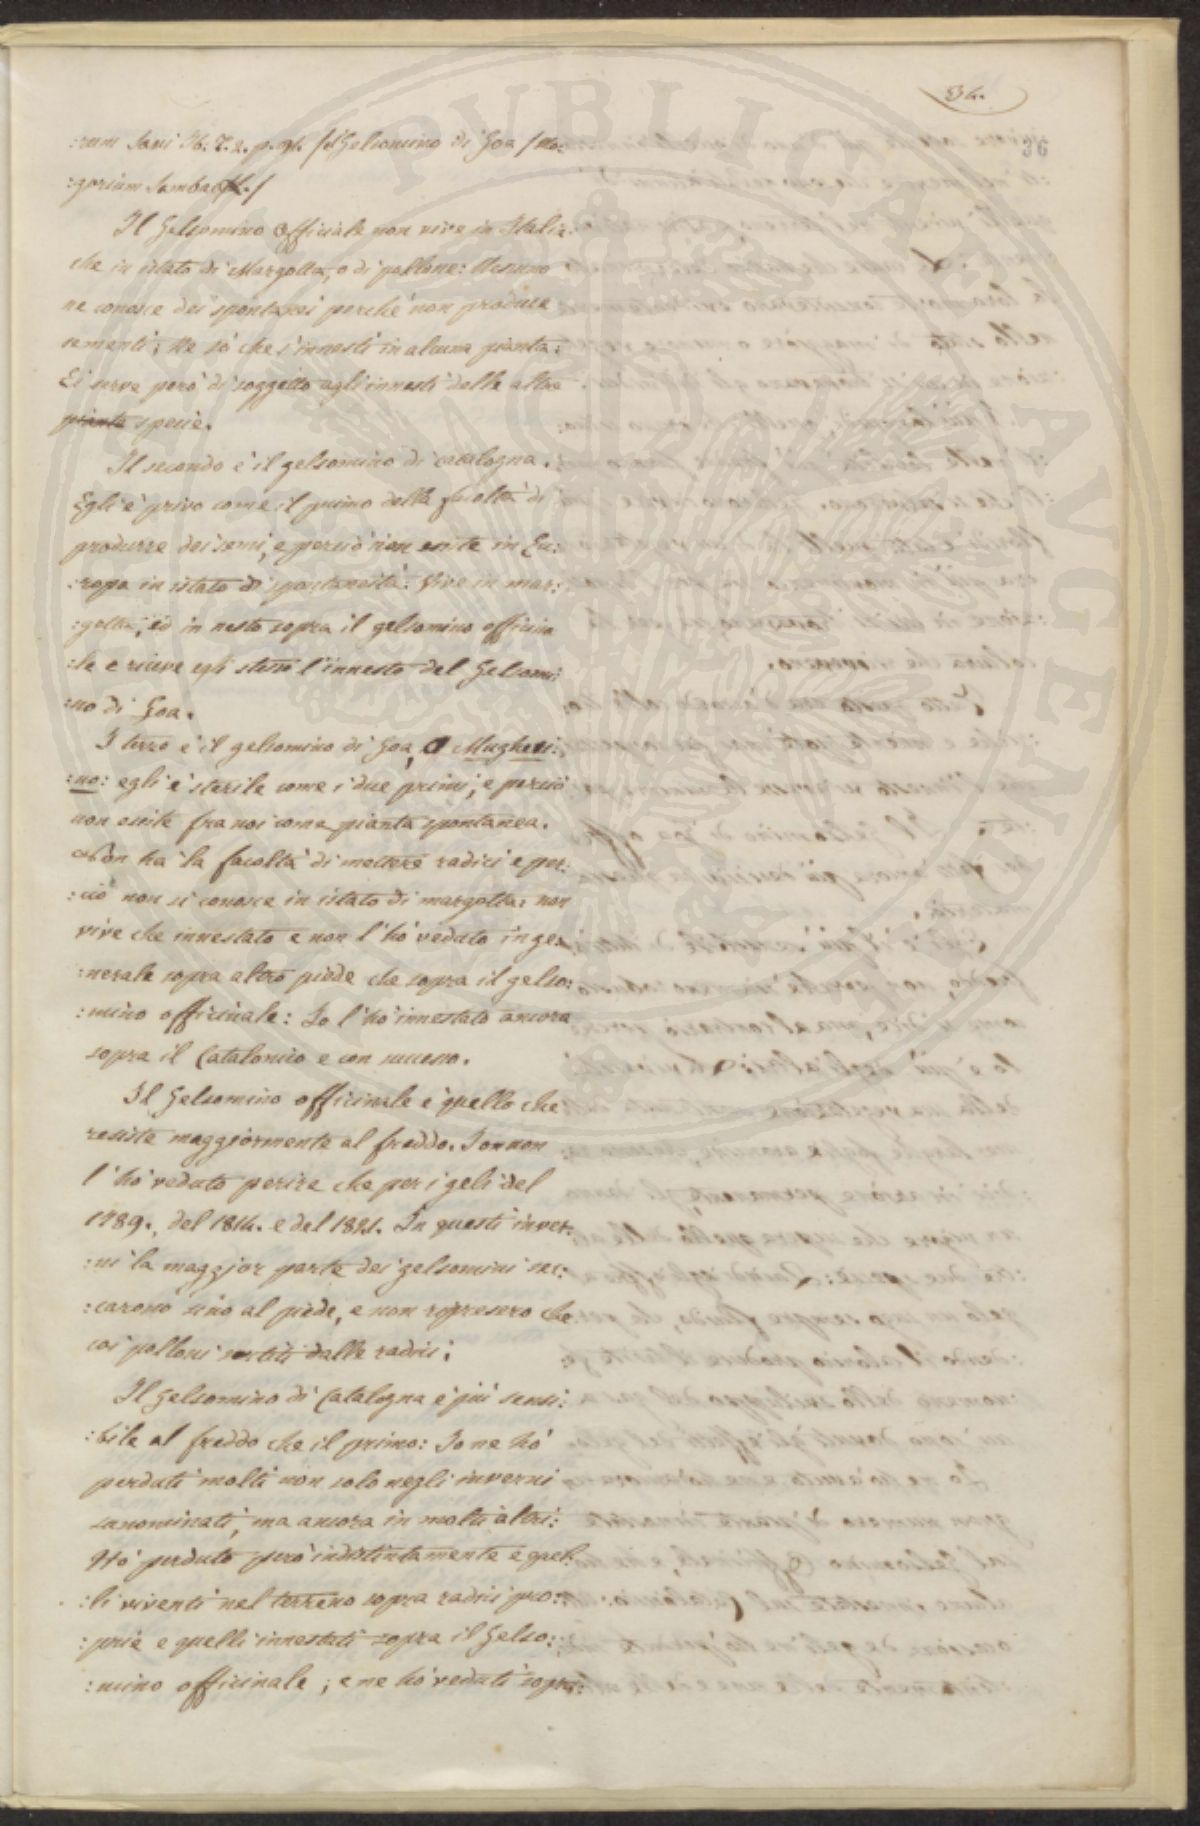 34.
36
:rum Savi Ib. T. 2. p. 91. / il Gelsomino di Goa / Mo:
:gorium Sambac L. /
Il Gelsomino Officiale non vive in Italia
che in istato di Margotta, o di pollone: Nessuno
ne conosce dei spontanei perchè non produce
sementi; Ne so che s'innesti in alcuna pianta:
Ei serve però di soggetto agli innesti delle altre
pianta specie.
Il secondo è il gelsomino di catalogna.
Egli è privo come il primo della facoltà di
produrre dei semi, e perciò non esite in Eu:
:ropa in istato di spontaneità. Vive in mar:
:gotta, ed in nesto sopra il gelsomino officina
:le e riceve egli stesso l'innesto del Gelsomi:
:no di Goa.
I terzo è il gelsomino di Goa, O Mugheri:
:no: egli è sterile come i due primi, e perciò
non esite fra noi come pianta spontanea.
Non ha la facoltà di mettere radici e per:
:ciò non si conosce in istato di margotta: non
vive che innestato e non l'hò veduto in ge:
:nerale sopra altro piede che sopra il gelso:
:mino officinale: Io l'hò innestato ancora
sopra il Catalonico e con sucesso.
Il Gelsomino officinale è quello che
resiste maggiormente al freddo. Io non
l'hò veduto perire che per i geli del
1789., del 1814. e del 1821. In questi inver:
:ni la maggior parte dei gelsomini sec:
:carono sino al piede, e non ripresero che
coi polloni sortiti dalle radici;
Il Gelsomino di Catalogna è più sensi:
:bile al freddo che il primo: Io ne hò
perduti molti non solo negli inverni
sunominati, ma ancora in molti altri:
Hò perduto però indistintamente e quel:
:li viventi nel terreno sopra radici pro:
:prie e quelli innestati sopra il Gelso:
:mino officinale; e ne hò veduti sopra: